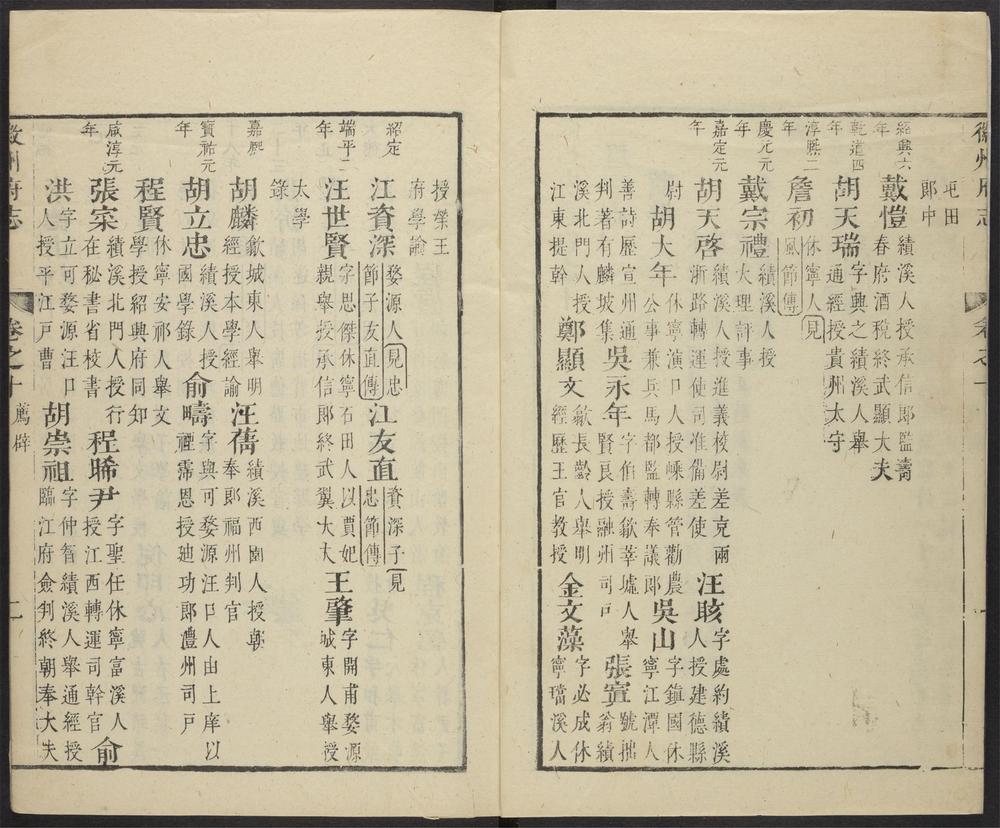 屯田郎中
紹興六年 戴愷 績溪人授承信郎監壽春府酒稅終武顯大夫
乾道四年 胡天瑞 字興之績溪人舉通經授貴州太守
淳熙二年 詹初 休寧人見風節傳
慶元元年 戴宗禮 績溪人授大理評事
嘉定元年 胡天啓 績溪人授進義校尉差充兩浙路轉運使司准備差使 汪晐 字處約績溪人授建德縣
尉 胡大年 休寧演口人授嵊縣管勸農公事兼兵馬都監轉奉議郎 吳山 字鎮國休寧江潭人
善詩歷宣州通判著有麟坡集 吳永年 字伯壽歙莘墟人舉賢良授融州司戶 張寘 號拙翁績
溪北門人授江東提幹 鄭顯文 歙長齡人舉明經歷王官教授 金文藻 字必成休寧璫溪人
授榮王府學諭
紹定 江資深 婺源人見忠節子友直傳 江友直 資深子見忠節傳
端平二年 汪世賢 字思傑休寧石田人以賈妃親舉授承信郎終武翼大夫 王肇 字開甫婺源城東人舉授
太學錄
嘉熙 胡麟 歙城東人舉明經授本學經諭 汪儔 績溪西園人授朝奉郎福州判官
寶祐元年 胡立忠 績溪人授國學錄 俞疇 字與可婺源汪口人由上庠以禋霈恩授廸功郎澧州司戶
程賢 休寧安祁人舉文學授紹興府同知
咸淳元年 張寀 績溪北門人授行在秘書省校書 程晞尹 字聖任休寧富溪人授江西轉運司幹官 俞
洪 字立可婺源汪口人授平江戶曹 胡崇祖 字仲智績溪人舉通經授臨江府僉判終朝奉大夫
徽州府志 卷之十 薦辟 二